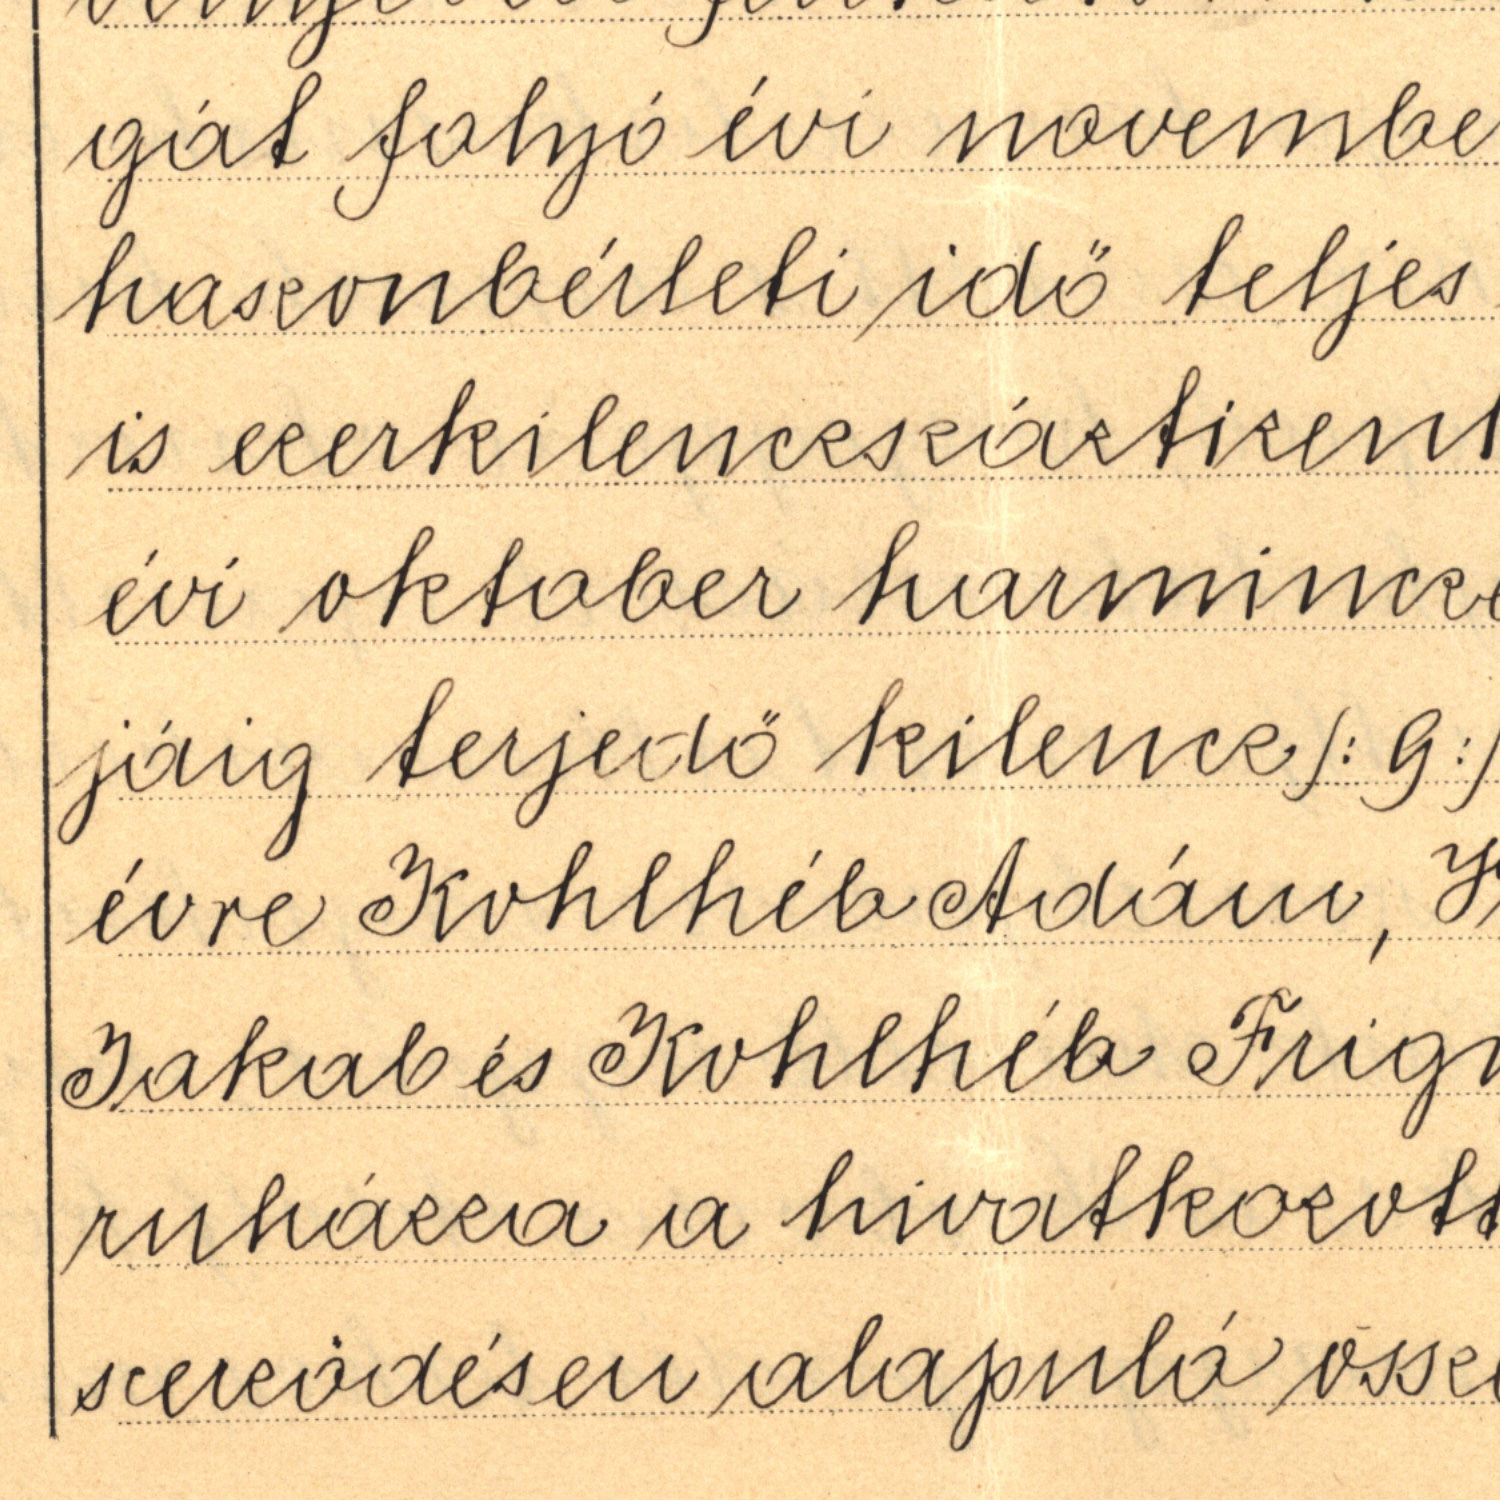 gát folyó évi novembe
haszonbérleti idő teljes
is ezerkilenczszáztizen
évi oktober harmincze
jáig terjedő kilencz /: 9 :/
évre Kohlhéb Ádám,
Jakab és Kohlhéb Frigy
ruházza a hivatkozott
szerződésen alapuló össze